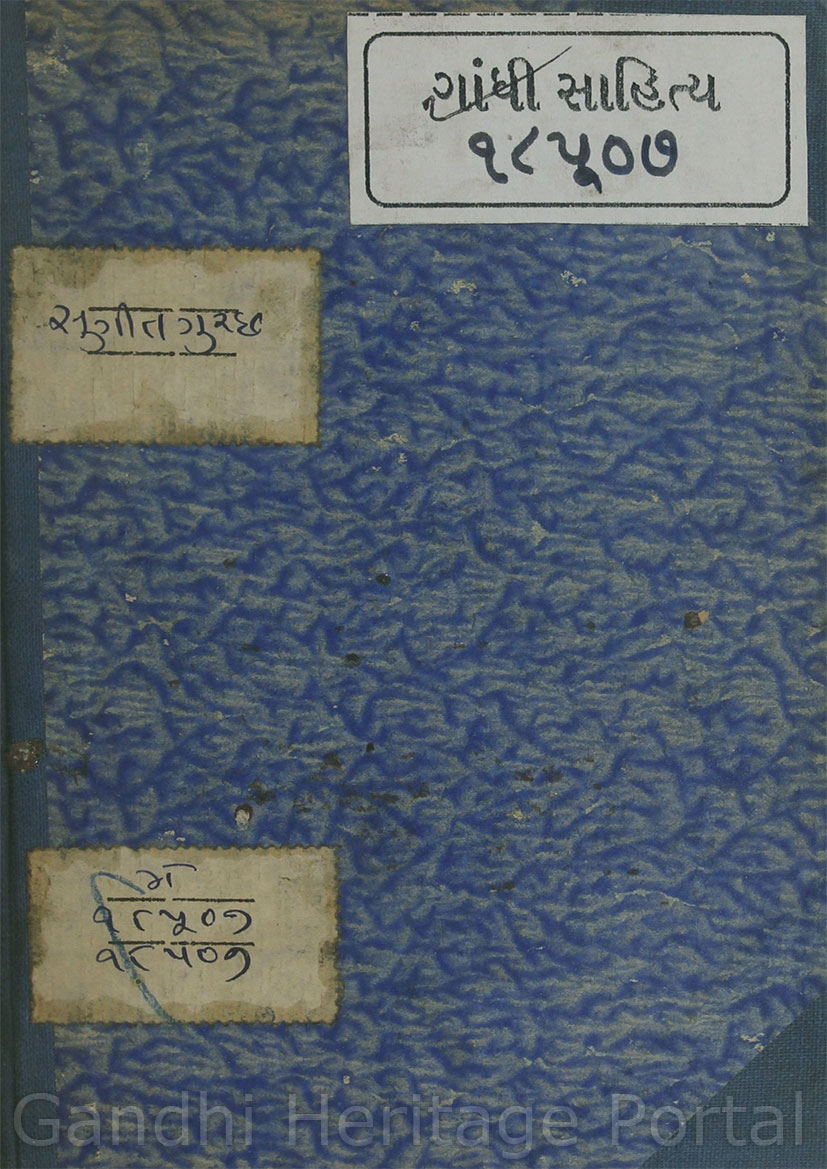 ગાંધી સાહિત્ય
૧૮૫૦૭
સુગીત ગુચ્છ
ગ
૧૮૫૦૭
૧૮૫૦૭
Gandhi Heritage Portal